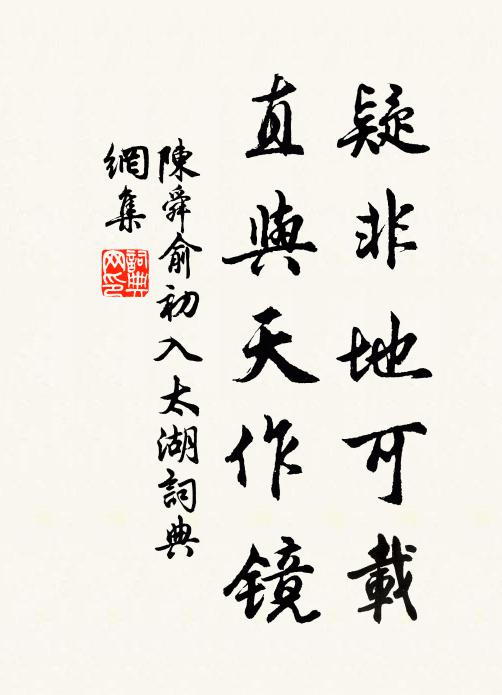 疑非地可載
直與天作镜
陳舜俞初入太湖詞典
網集
詞典
网印